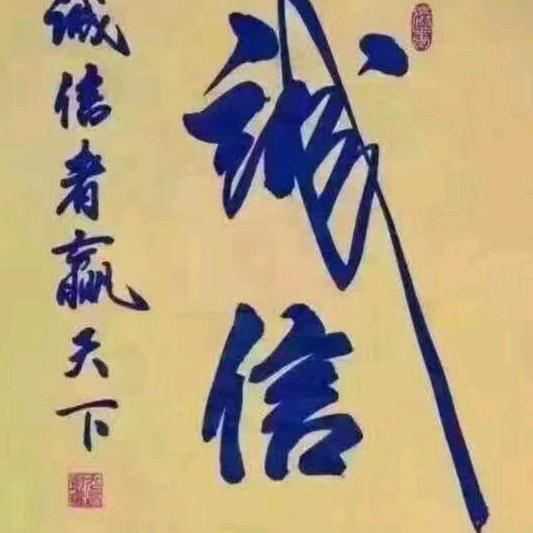 誠信
诚信者赢天下